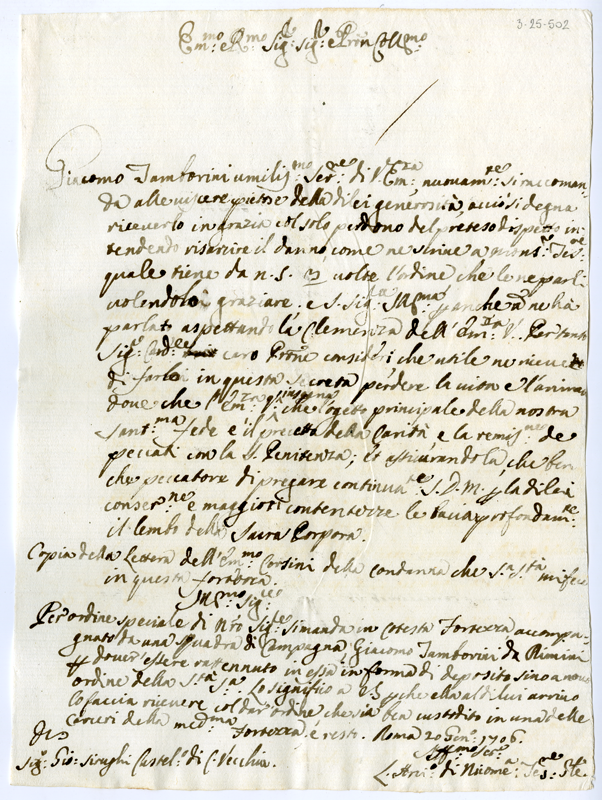 3-25-502
Em:mo e R:mo Sig:r Sig:r e Pron Coll:mo
Giacomo Tamborini umiliss:mo Ser:re di V: Em:za, nuovam:te si raccoman-
da alle viscere pietose della di lei generosità, acciò si degna
riceverlo in grazia col solo perdono del preteso dispetto in-
tendendo risarcire il danno come ne scrisse a Mons:r
quale tiene da N. S. 3 volte l'ordine che le ne parli
volendolo graziare. e S. Sig:ria Ill:ma anche ne ha
parlato aspettando la Clemenza dell' Em:za V: Per tanto
Sig:r Card:le caro Prone consideri che utile ne riceve
di farlo in questa secreta perdere la vita e l'anima
dove che l' Em:za V: insegna che l'ogetto principale della nostra
Sant:ma fede è il precetto della Carità e la remiss:ne de
peccati con la S. Penitenza; et assicurandola, che ben
che peccatore di pregare continuam:te S. D. M. per la di lei
conser:ne e maggiori contentezze le bacia profondam:te
il lembo della Sacra Porpora.
Copia della lettera dell' Em:mo Corsini della condanna che S.a S.tà mi fece
in questa fortezza.
Ill:mo Sig:re
Per ordine speciale di N:ro Sig:re si manda in cotesta Fortezza accompa-
gnato da una squadra di Campagna, Giacomo Tamborini da Rimini
per dover essere rattenuto in essa in forma di deposito sino a nuovo
ordine della S.tà Sa. Lo significo a VS perche ella al di lui arrivo
lo faccia ricevere col dar ordine che sia ben custodito in una delle
carceri della med:ma Fortezza, e resto. Roma 20 Gen:o 1706.
Aff:mo Ser:re
Sig:r Gio: Siraghi Castel:no di C. Vecchia.
L. Arciv:o di Nicome:a Tes:re G:le